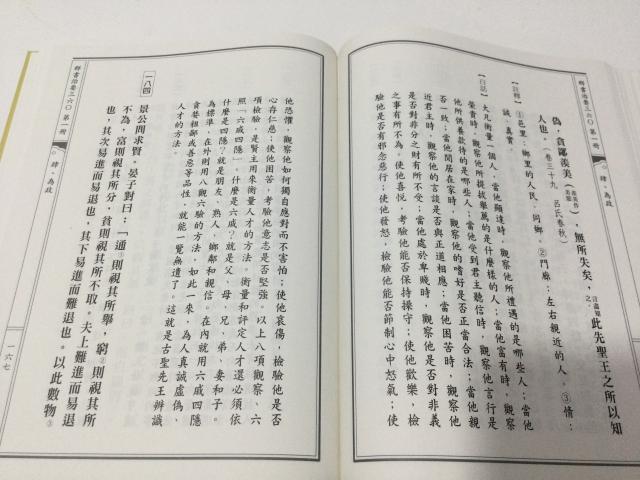 群書治要三六〇 第一冊
肆、為政
偽，貪鄙羨美
，無所失矣，
此先聖王之所以知
人也。（卷三十九 呂氏春秋）
【註釋】①邑里：鄉里的人民，同鄉。②門廊：左右親近的人。③情：
誠，真實。
【白話】
大凡衡量一個人，當他顯達時，觀察他所禮遇的是哪些人；當他
榮貴時，觀察他所提拔舉薦的是什麼樣的人；當他富有時，觀察
他所供養款待的是哪些人；當他受到君主聽信時，觀察他言行是
否一致；當他閒居在家時，觀察他的嗜好是否正當合法；當他親
近君主時，觀察他的言談是否與正道相應；當他困苦時，觀察他
是否對非分之財有所不受；當他處於卑賤時，觀察他是否對非義
之事有所不為。使他喜悅，考驗他能否保持操守；使他歡樂，檢
驗他是否有邪念惡行；使他發怒，檢驗他能否節制心中怒氣；使
群書治要三六〇 第一冊
肆、為政
一六七
他恐懼，觀察他如何獨自應對而不害怕；使他哀傷，檢驗他是否
心存仁慈；使他困苦，考驗他意志是否堅強。以上八項觀察、六
項檢驗，是賢主用來衡量人才的方法。衡量和評定人才還必須依
照「六戚四隱」。什麼是六戚？就是父、母、兄、弟、妻和子。
什麼是四隱？就是朋友、熟人、鄉鄰和親信。在內就用六戚四隱
為標準，在外則用八觀六驗的方法，如此一來，為人真誠虛偽、
貪婪粗鄙或善惡等品性，就能一覽無遺了。這就是古聖先王辨識
人才的方法。
一八四
景公問求賢。晏子對曰：「通①則視其所舉，窮②則視其所
不為，富則視其所分，貧則視其所不取。夫上難進而易退
也，其次易進而易退也，其下易進而難退也。以此數物③